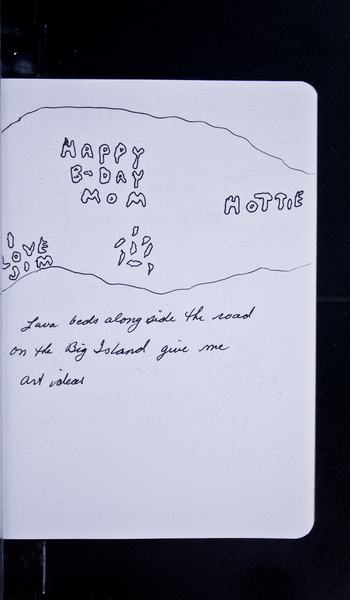 HAPPY
B-DAY
MOM
HOTTIE
I
LOVE
JIM
Lava beds along side the road
on the Big Island give me
art ideas